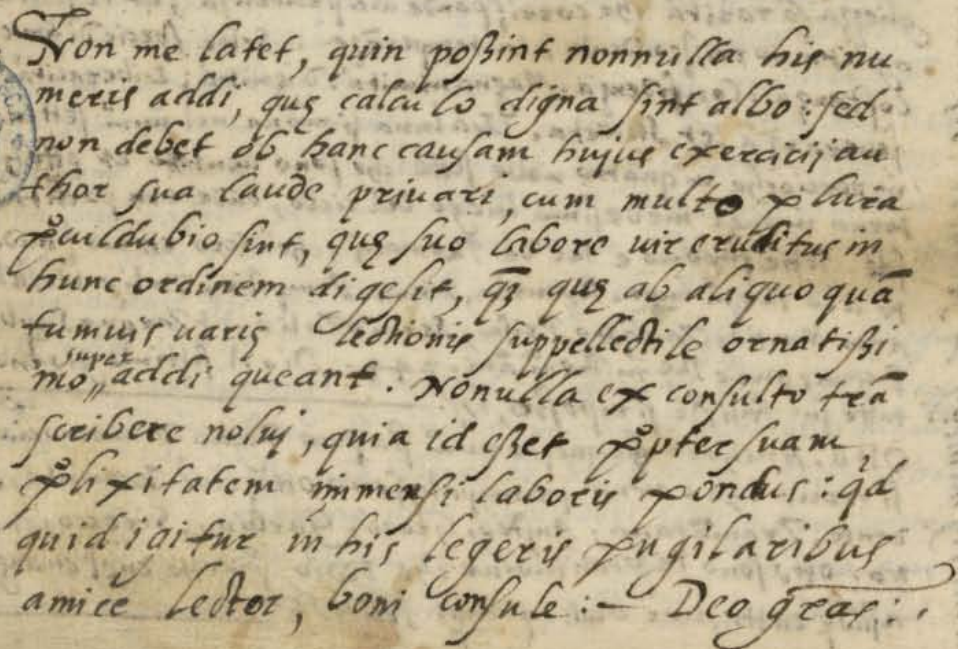 Non me latet, quin poßint nonnulla his nu
meris addi, quę calculo digna sint albo: sed
non debet ob hanc causam hujus exercicij au
thor sua laude priuari, cum multo plura
p̊culdubio sint, quę suo labore uir eruditus in
hunc ordinem digesit, q̃ȝ quę ab aliquo quã
tumuis uarię lectionis suppellectile ornatißi
mo super addi queant. Nonulla ex consulto trã
scribere noluj, quia id eßet p̊pter suam
p̊lixitatem immensi laboris pondus: qd
quid igitur in his legeris pugilaribus
amice lector, boni consule:- Deo gr̃as:.